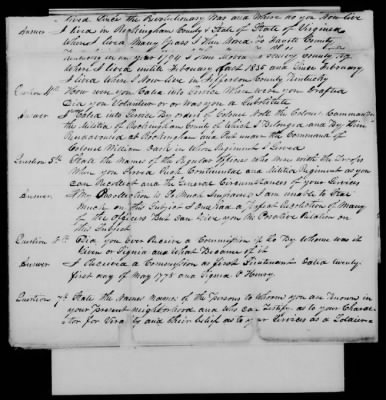 lived Since the Revolutionary War and Where do you Now live
Answer I lived in Rockingham County & State of State of Virginia
When I lived Many years I then Moved to Fayette County
When I lived until February of 1836 and Since February
I lived When I Now live in Jefferson County Kentucky
Question 4th How were you Calld into Service When were you Drafted
Did you Volunteer or or was you a Substitute
Answer I Calld into Service By orders of Colonel Nolle the Colonel Commanding
the Militia of Rockingham County of Which I Belonged and By Him
Rendavoused at Rockingham and Put under the Command of
Colonel William in whom Regiment I Served
Question 5th State the Names of the Regular officers who were with the Troops
When you Served Such Continental and Militia Regiment as you
can Recollect and the General Circumstances of your Services
Answer My Recollection is So Much Impaired I am unable to State
Much on this Subject I one had a Perfect Recolection of Many
of the officers But can Give you No Positive Relation on
this Subject
Question 6th Did you ever Receive a Commission if So By Whome was it
Given or Signed and What Became of it
Answer I Received a Commission as first Lieutenant Dated twenty-
first day of May 1778 and Signed P Henery
Question 7th State the Names names of the Persons to Whome you are Known in
your Present neighborhood and who can Testify as to your Charac
ter for Veracity and their belief as to your Services as a Soldier